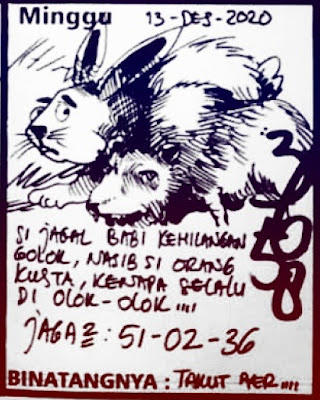 Minggu 13-DES-2020
SI JAGAL BABI KEHILANGAN
GOLOK, NASIB SI ORANG
KUSTA, KENAPA SELALU
DI OLOK-OLOK....
JAGA2 : 51-02-36
BINATANGNYA : TAKUT AYER....